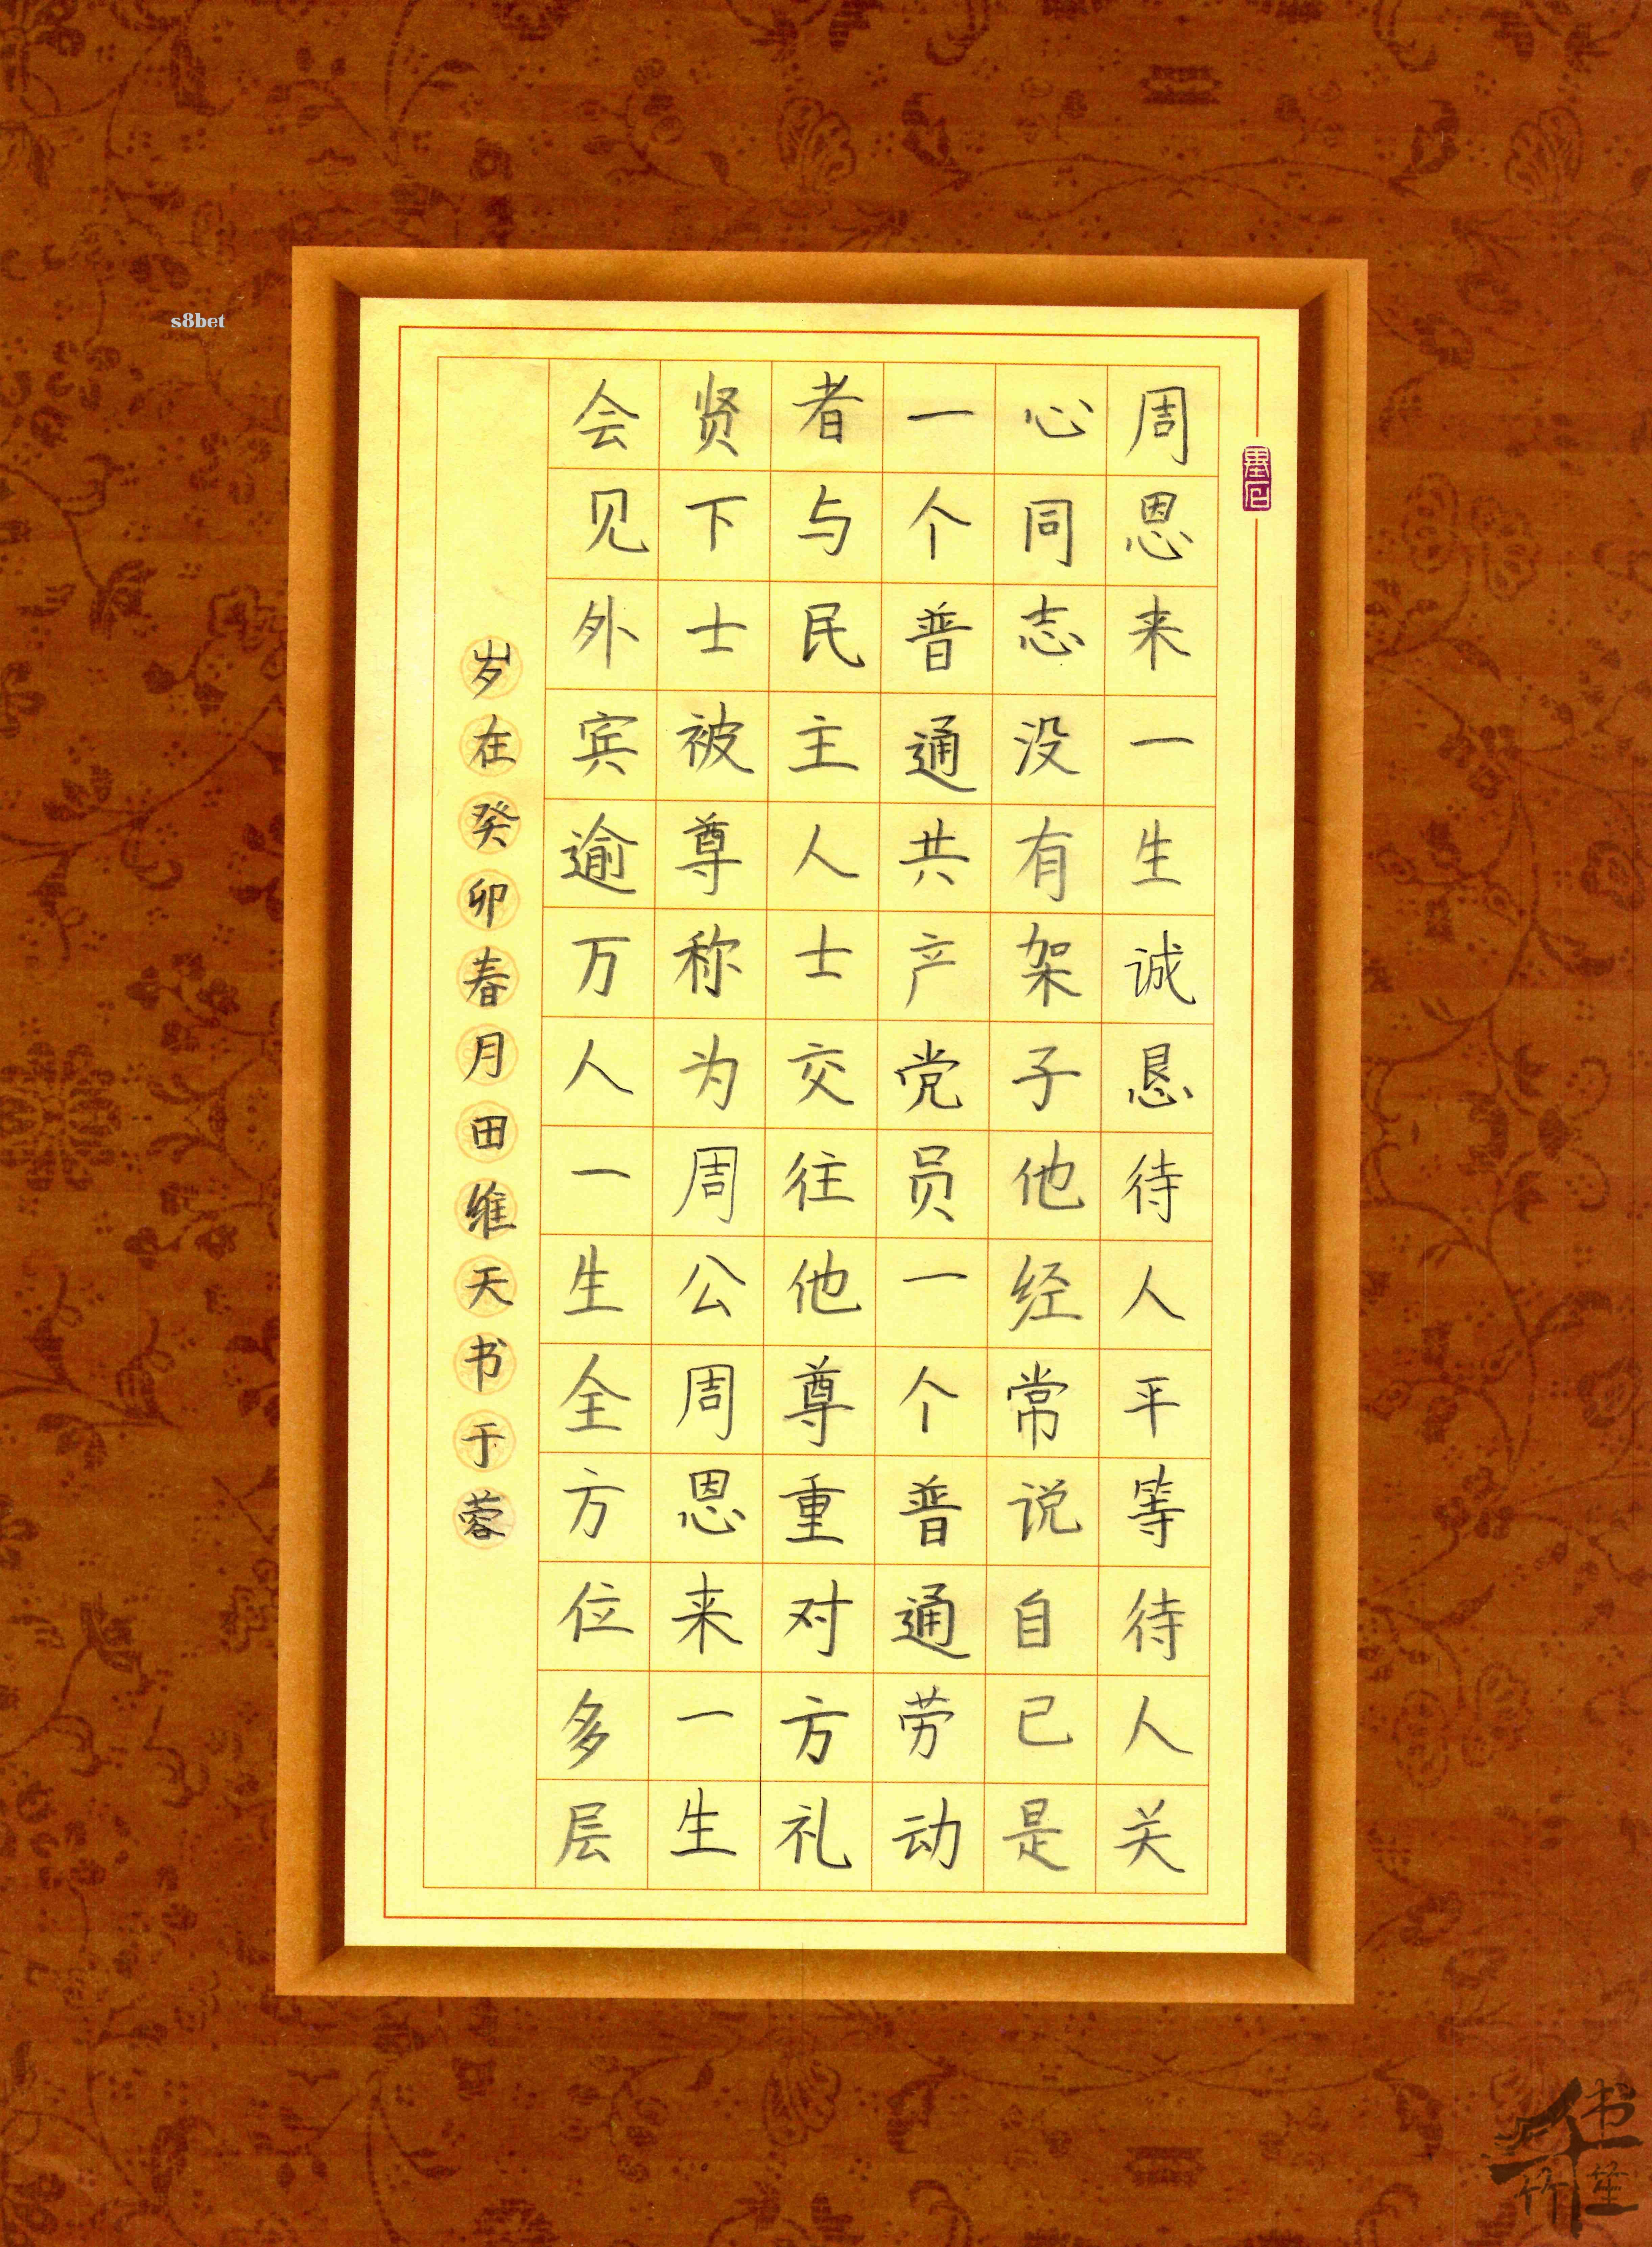 周恩来一生诚恳待人平等待人关
心同志没有架子他经常说自已是
一个普通共产党员一个普通劳动
者与民主人士交往他尊重对方礼
贤下士被尊称为周公周恩来一生
会见外宾逾万人一生全方位多层
岁在癸卯春月田维天书于蓉
s8bet